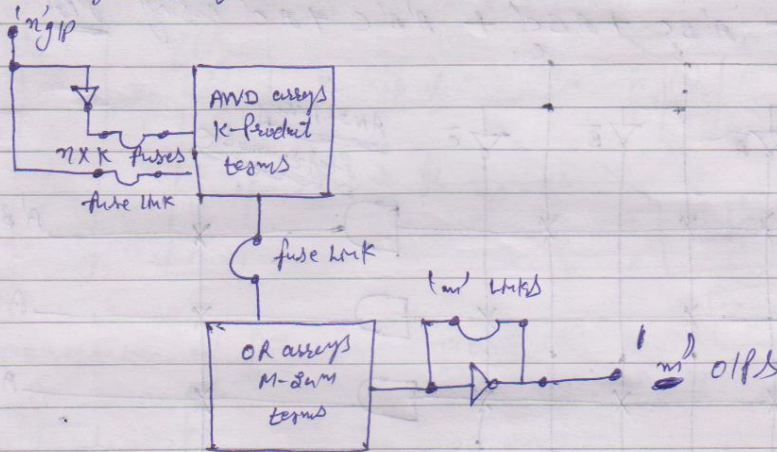 'n' g/p
AND arrys
K-Produit
terms
nXK fuses
fuse link
fuse link
'm' links
OR arreys
M-Sum
terms
'm' O/P S